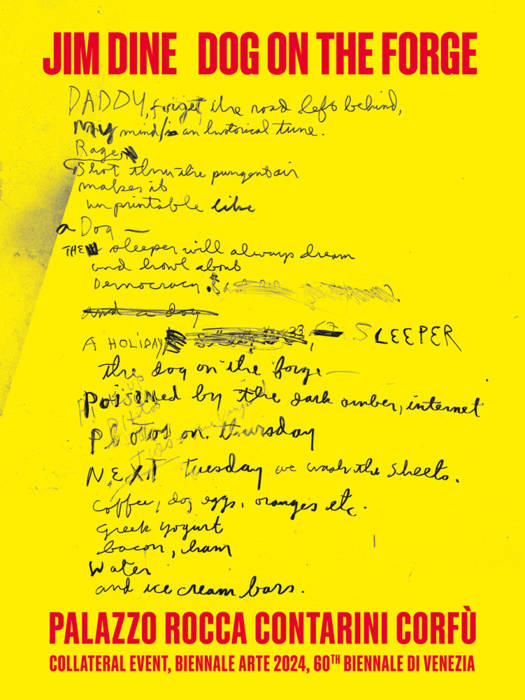 JIM DINE DOG ON THE FORGE
DADDY, forget the road left behind,
My mind is an historical tune.
Rage
Shot thru the pungent air
makes it
unprintable like
a Dog —
THE sleeper will always dream
and howl about
Democracy.
and a dog
A HOLIDAY SLEEPER
the dog on the forge —
Poisoned by the dark amber, internet
Photos on thursday
NEXT tuesday we wash the sheets.
coffee, dog, eggs, oranges etc.
greek yogurt
bacon, ham
Water
and ice cream bars.
PALAZZO ROCCA CONTARINI CORFÙ
COLLATERAL EVENT, BIENNALE ARTE 2024, 60TH BIENNALE DI VENEZIA